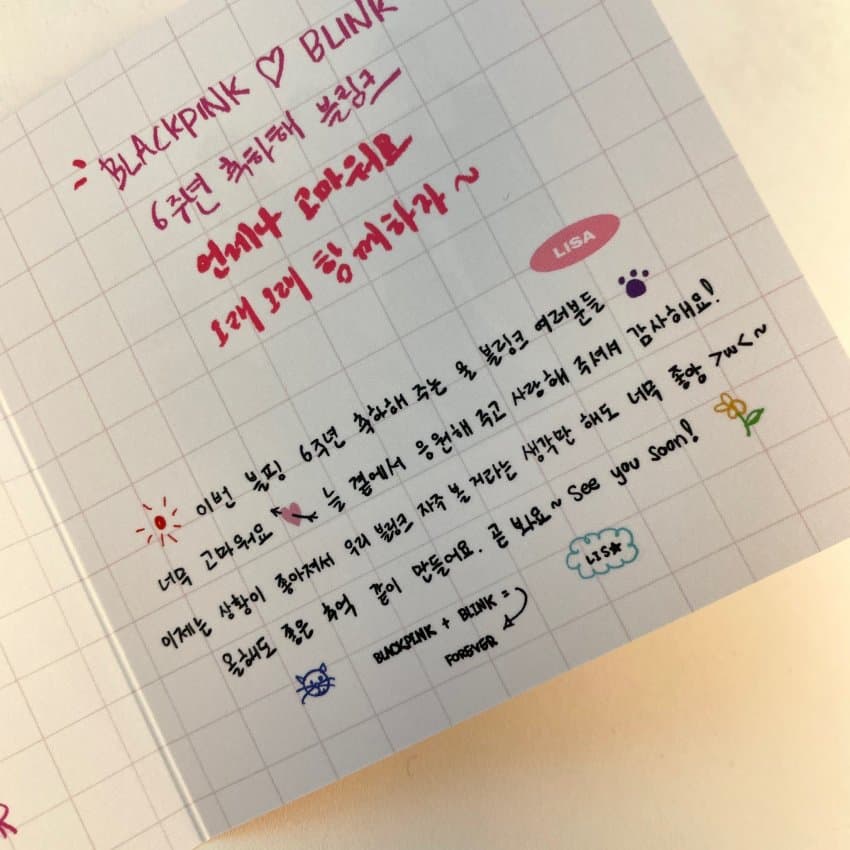 BLACKPINK ♡ BLINK
6주년 축하해 블링크
언제나 고마워요
오래오래 함께하자~
LISA
이번 블핑 6주년 축하해 주는 울 블링크 여러분들
너무 고마워요 늘 곁에서 응원해 주고 사랑해 주셔셔 감사해요!
이제는 상황이 좋아져서 우리 블링크 자주 볼 거라는 생각만 해도 너무 좋앙 >w<~
올해도 좋은 추억 같이 만들어요. 곧 봐요~ see you soon!
BLACKPINK + BLINK =
FOREVER
LIS★